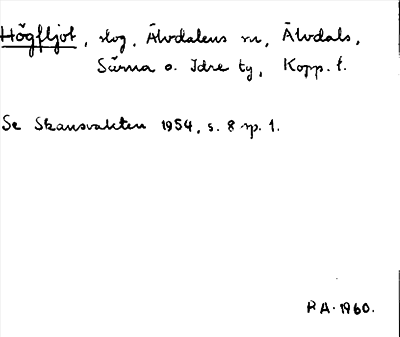 Högfljot, skog, Älvdalens sn, Älvdals,
Särna o. Idre tg, Kopp. l.
Se Skansvakten 1954, s. 8 sp. 1.
R A. 1960.